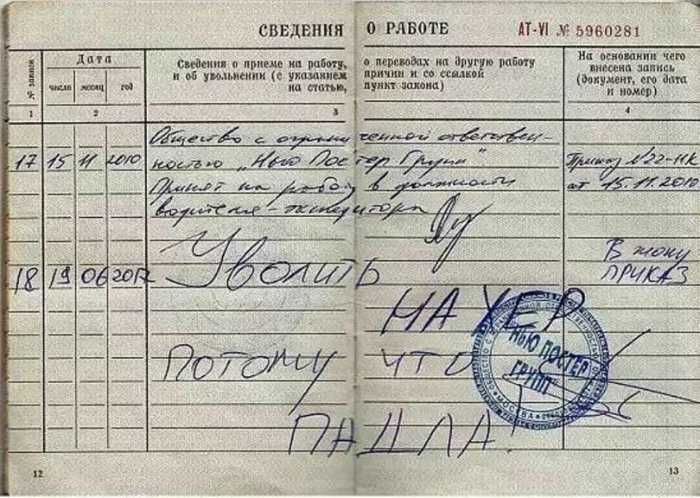 СВЕДЕНИЯ О РАБОТЕ AT-VI № 5960281
№ записи
Дата
число месяц год
Сведения о приеме на работу, о переводах на другую работу
и об увольнении (с указанием причин и со ссылкой
на статью, пункт закона)
На основании чего
внесена запись
(документ, его дата
и номер)
1 2 3 4
Общество с ограниченной ответствен-
17 15 11 2010 ностью „Нью Постер Групп" Приказ N22-НК
Принят на работу в должности от 15.11.2010
водителя-экспедитора
18 19 06 2012 Уволить В жопу
ПРИКАЗ
НАХЕР
ПОТОМУ ЧТО
ПАДЛА!
НЬЮ ПОСТЕР
ГРУПП
МОСКВА
12 13